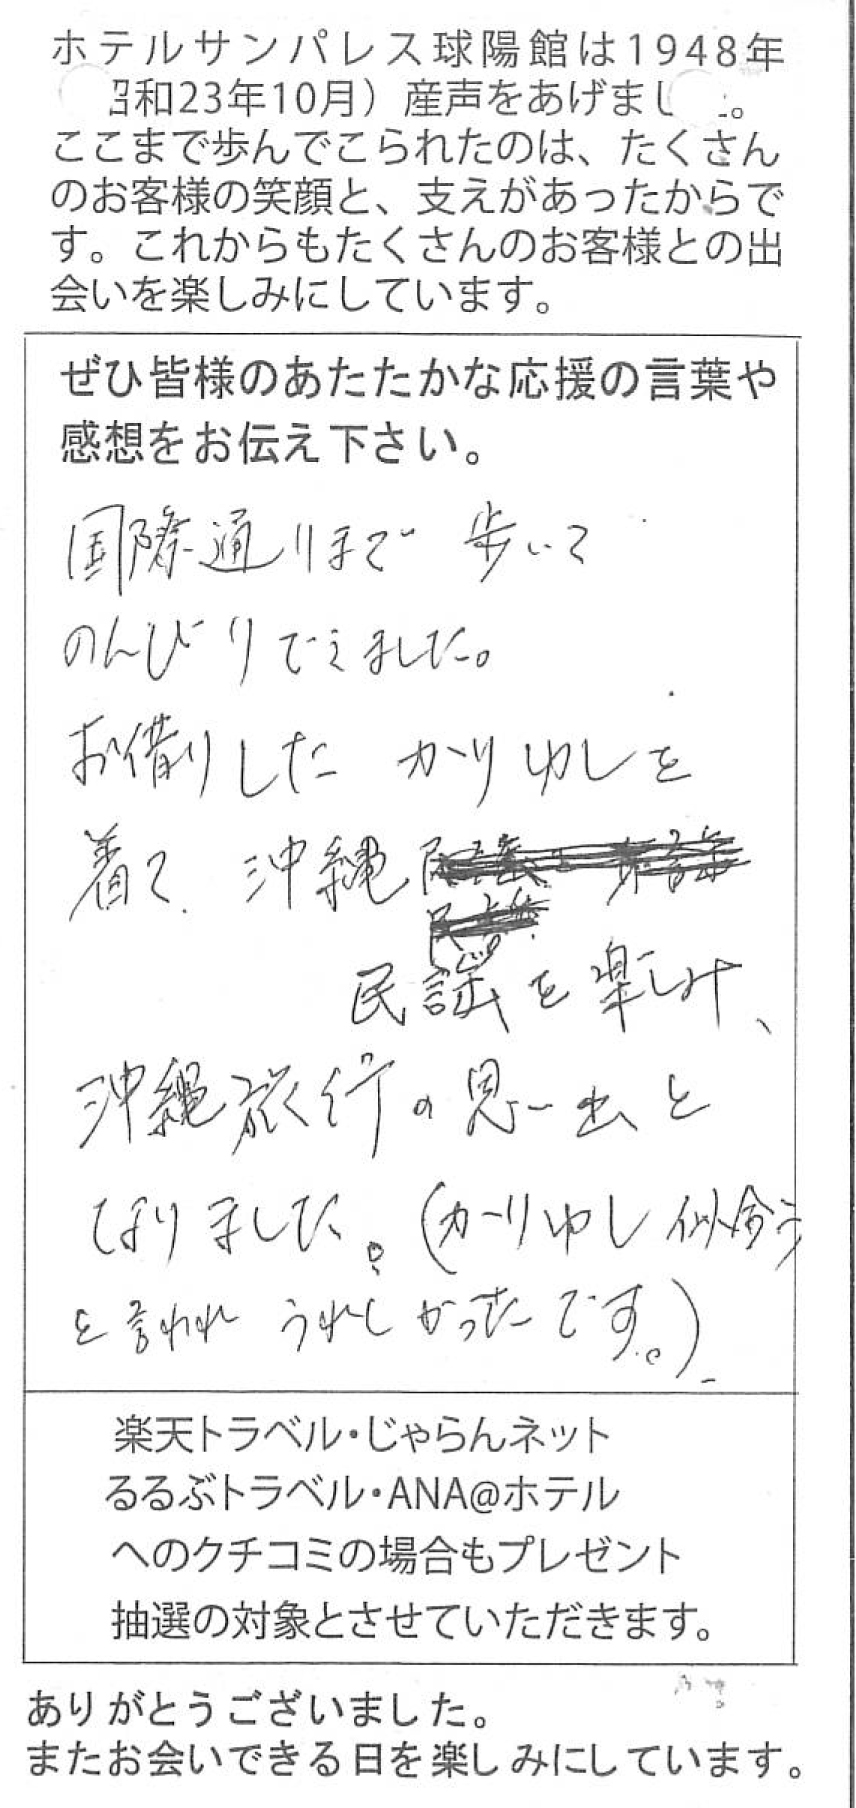 ホテルサンパレス球陽館は1948年
昭和23年10月）産声をあげました。
ここまで歩んでこられたのは、たくさん
のお客様の笑顔と、支えがあったからで
す。これからもたくさんのお客様との出
会いを楽しみにしています。
ぜひ皆様のあたたかな応援の言葉や
感想をお伝え下さい。
国際通りまで 歩いて
のんびりできました。
お借りした かりゆしを
着て 沖縄
民謡を楽しみ、
沖縄旅行の思い出と
なりました。(かりゆし似合う
と言われ うれしかったです。)
楽天トラベル・じゃらんネット
るるぶトラベル・ANA@ホテル
へのクチコミの場合もプレゼント
抽選の対象とさせていただきます。
ありがとうございました。
またお会いできる日を楽しみにしています。